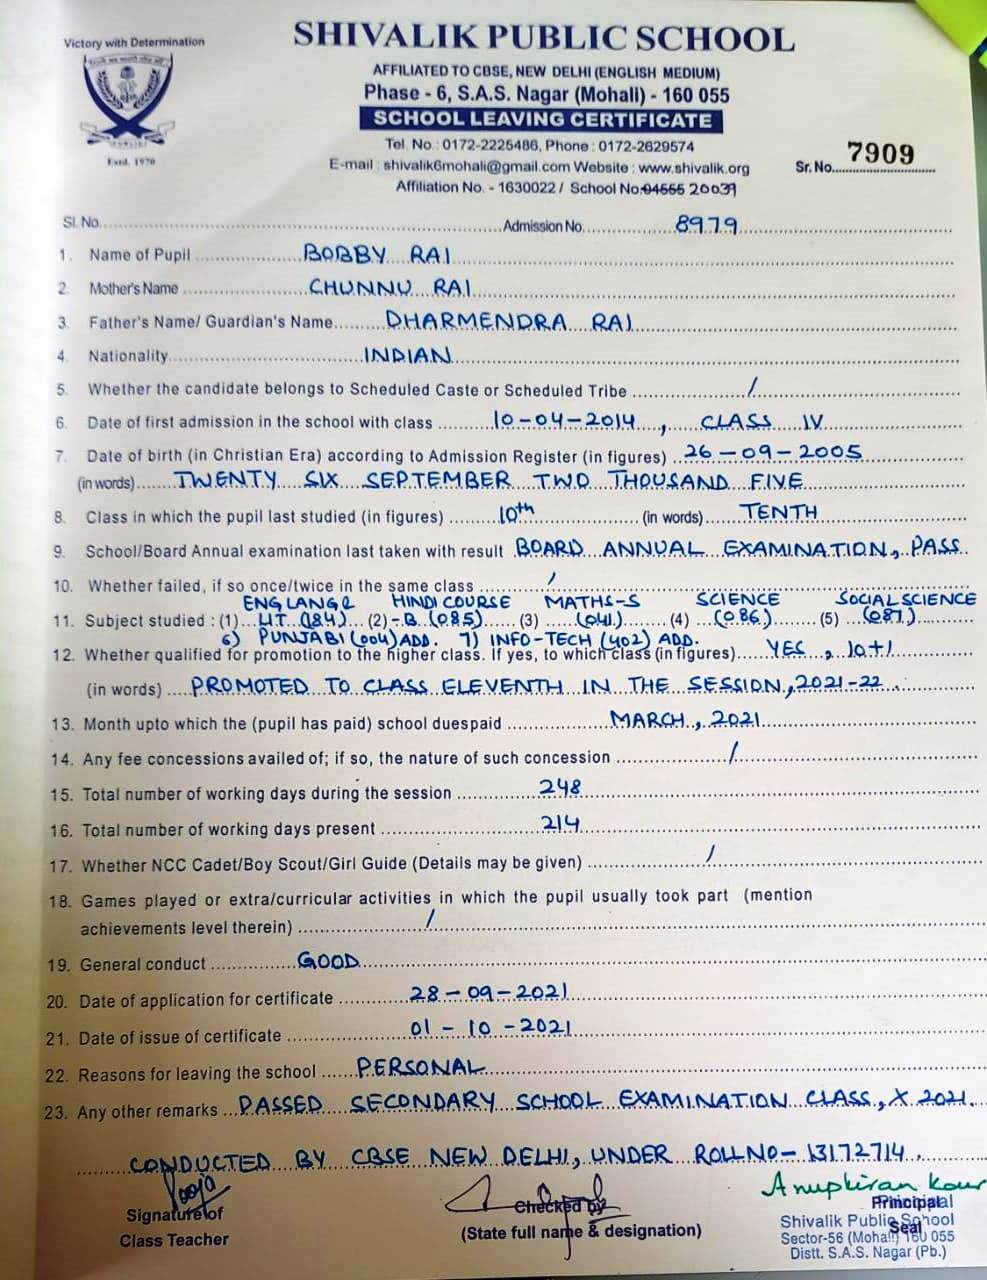 Victory with Determination
SHIVALIK PUBLIC SCHOOL
AFFILIATED TO CBSE, NEW DELHI (ENGLISH MEDIUM)
Phase - 6, S.A.S. Nagar (Mohali) - 160 055
SCHOOL LEAVING CERTIFICATE
Tel. No. : 0172-2225486, Phone : 0172-2629574
E-mail : shivalik6mohali@gmail.com Website : www.shivalik.org
Affiliation No. - 1630022 / School No. 04555 20039
Estd. 1970
Sr. No. 7909
Sl. No. Admission No. 8979
1. Name of Pupil BOBBY RAI
2. Mother's Name CHUNNU RAI
3. Father's Name/ Guardian's Name DHARMENDRA RAI
4. Nationality INDIAN
5. Whether the candidate belongs to Scheduled Caste or Scheduled Tribe /
6. Date of first admission in the school with class 10-04-2014, CLASS IV
7. Date of birth (in Christian Era) according to Admission Register (in figures) 26-09-2005
(in words) TWENTY SIX SEPTEMBER TWO THOUSAND FIVE
8. Class in which the pupil last studied (in figures) 10th (in words) TENTH
9. School/Board Annual examination last taken with result BOARD ANNUAL EXAMINATION, PASS
10. Whether failed, if so once/twice in the same class /
ENG LANG & HINDI COURSE MATHS-S SCIENCE SOCIAL SCIENCE
11. Subject studied : (1) LIT (184) (2) -B (085) (3) (041) (4) (086) (5) (087)
6) PUNJABI (004) ADD. 7) INFO-TECH (402) ADD.
12. Whether qualified for promotion to the higher class. If yes, to which class (in figures) YES, 10+1
(in words) PROMOTED TO CLASS ELEVENTH IN THE SESSION, 2021-22.
13. Month upto which the (pupil has paid) school duespaid MARCH, 2021
14. Any fee concessions availed of; if so, the nature of such concession /
15. Total number of working days during the session 248
16. Total number of working days present 214
17. Whether NCC Cadet/Boy Scout/Girl Guide (Details may be given) /
18. Games played or extra/curricular activities in which the pupil usually took part (mention
achievements level therein) /
19. General conduct GOOD
20. Date of application for certificate 28-09-2021
21. Date of issue of certificate 01-10-2021
22. Reasons for leaving the school PERSONAL
23. Any other remarks PASSED SECONDARY SCHOOL EXAMINATION CLASS, X 2021.
CONDUCTED BY CBSE NEW DELHI, UNDER ROLL NO- 13172714.
Pooja
Anupkiran Kaur
Signature of
Class Teacher
Checked by
(State full name & designation)
Principal
Seal
Principal
Shivalik Public School
Sector-56 (Mohali) 160 055
Distt. S.A.S. Nagar (Pb.)